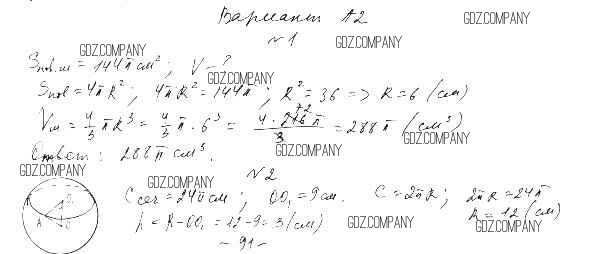 Вариант А2
GDZ.COMPANY
№1
GDZ.COMPANY
GDZ.COMPANY
Sпов.ш = 144π см²; V - ?
GDZ.COMPANY
Sпов = 4πR²; 4πR² = 144π; R² = 36 => R = 6 (см)
Vш = 4/3 πR³ = 4/3 π · 6³ = 4 · 216 π / 3 = 288π (см³)
GDZ.COMPANY
GDZ.COMPANY
Ответ: 288π см³.
GDZ.COMPANY
№2
GDZ.COMPANY
Cсеч = 24π см; OO₁ = 9 см. C = 2πR; 2πR = 24π
R = 12 (см)
h = R - OO₁ = 12 - 9 = 3 (см)
GDZ.COMPANY
GDZ.COMPANY
A
O₁
O
- 91 -